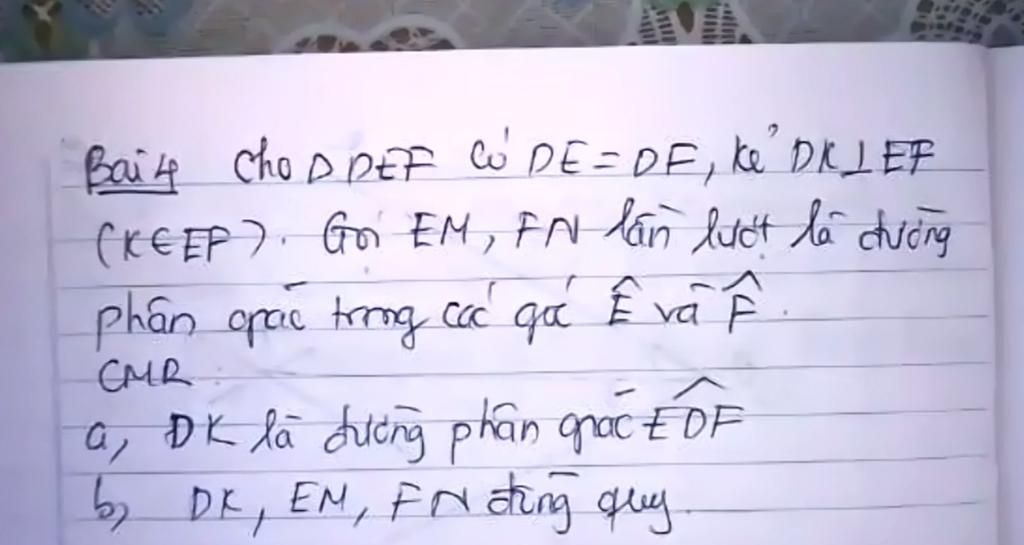 Bài 4 Cho Δ DEF có DE = DF, kẻ DK⊥EF
(K∈EF). Gọi EM, FN lần lượt là đường
phân giác trong các góc Ê và F̂.
CMR:
a, DK là đường phân giác \widehat{EDF}
b, DK, EM, FN đồng quy.